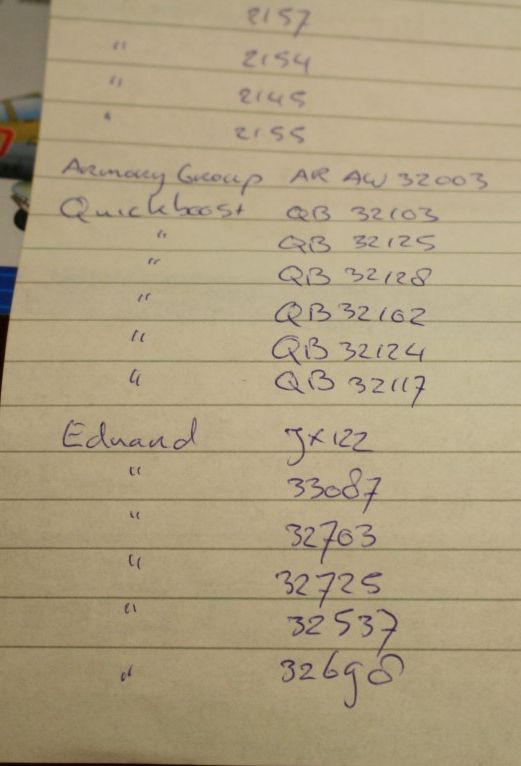 2157
" 2154
" 2145
" 2155
Armory Group AR AW 32003
Quickboost QB 32103
" QB 32125
" QB 32128
" QB 32102
" QB 32124
" QB 32117
Eduard JX122
" 33087
" 32703
" 32725
" 32537
" 32698